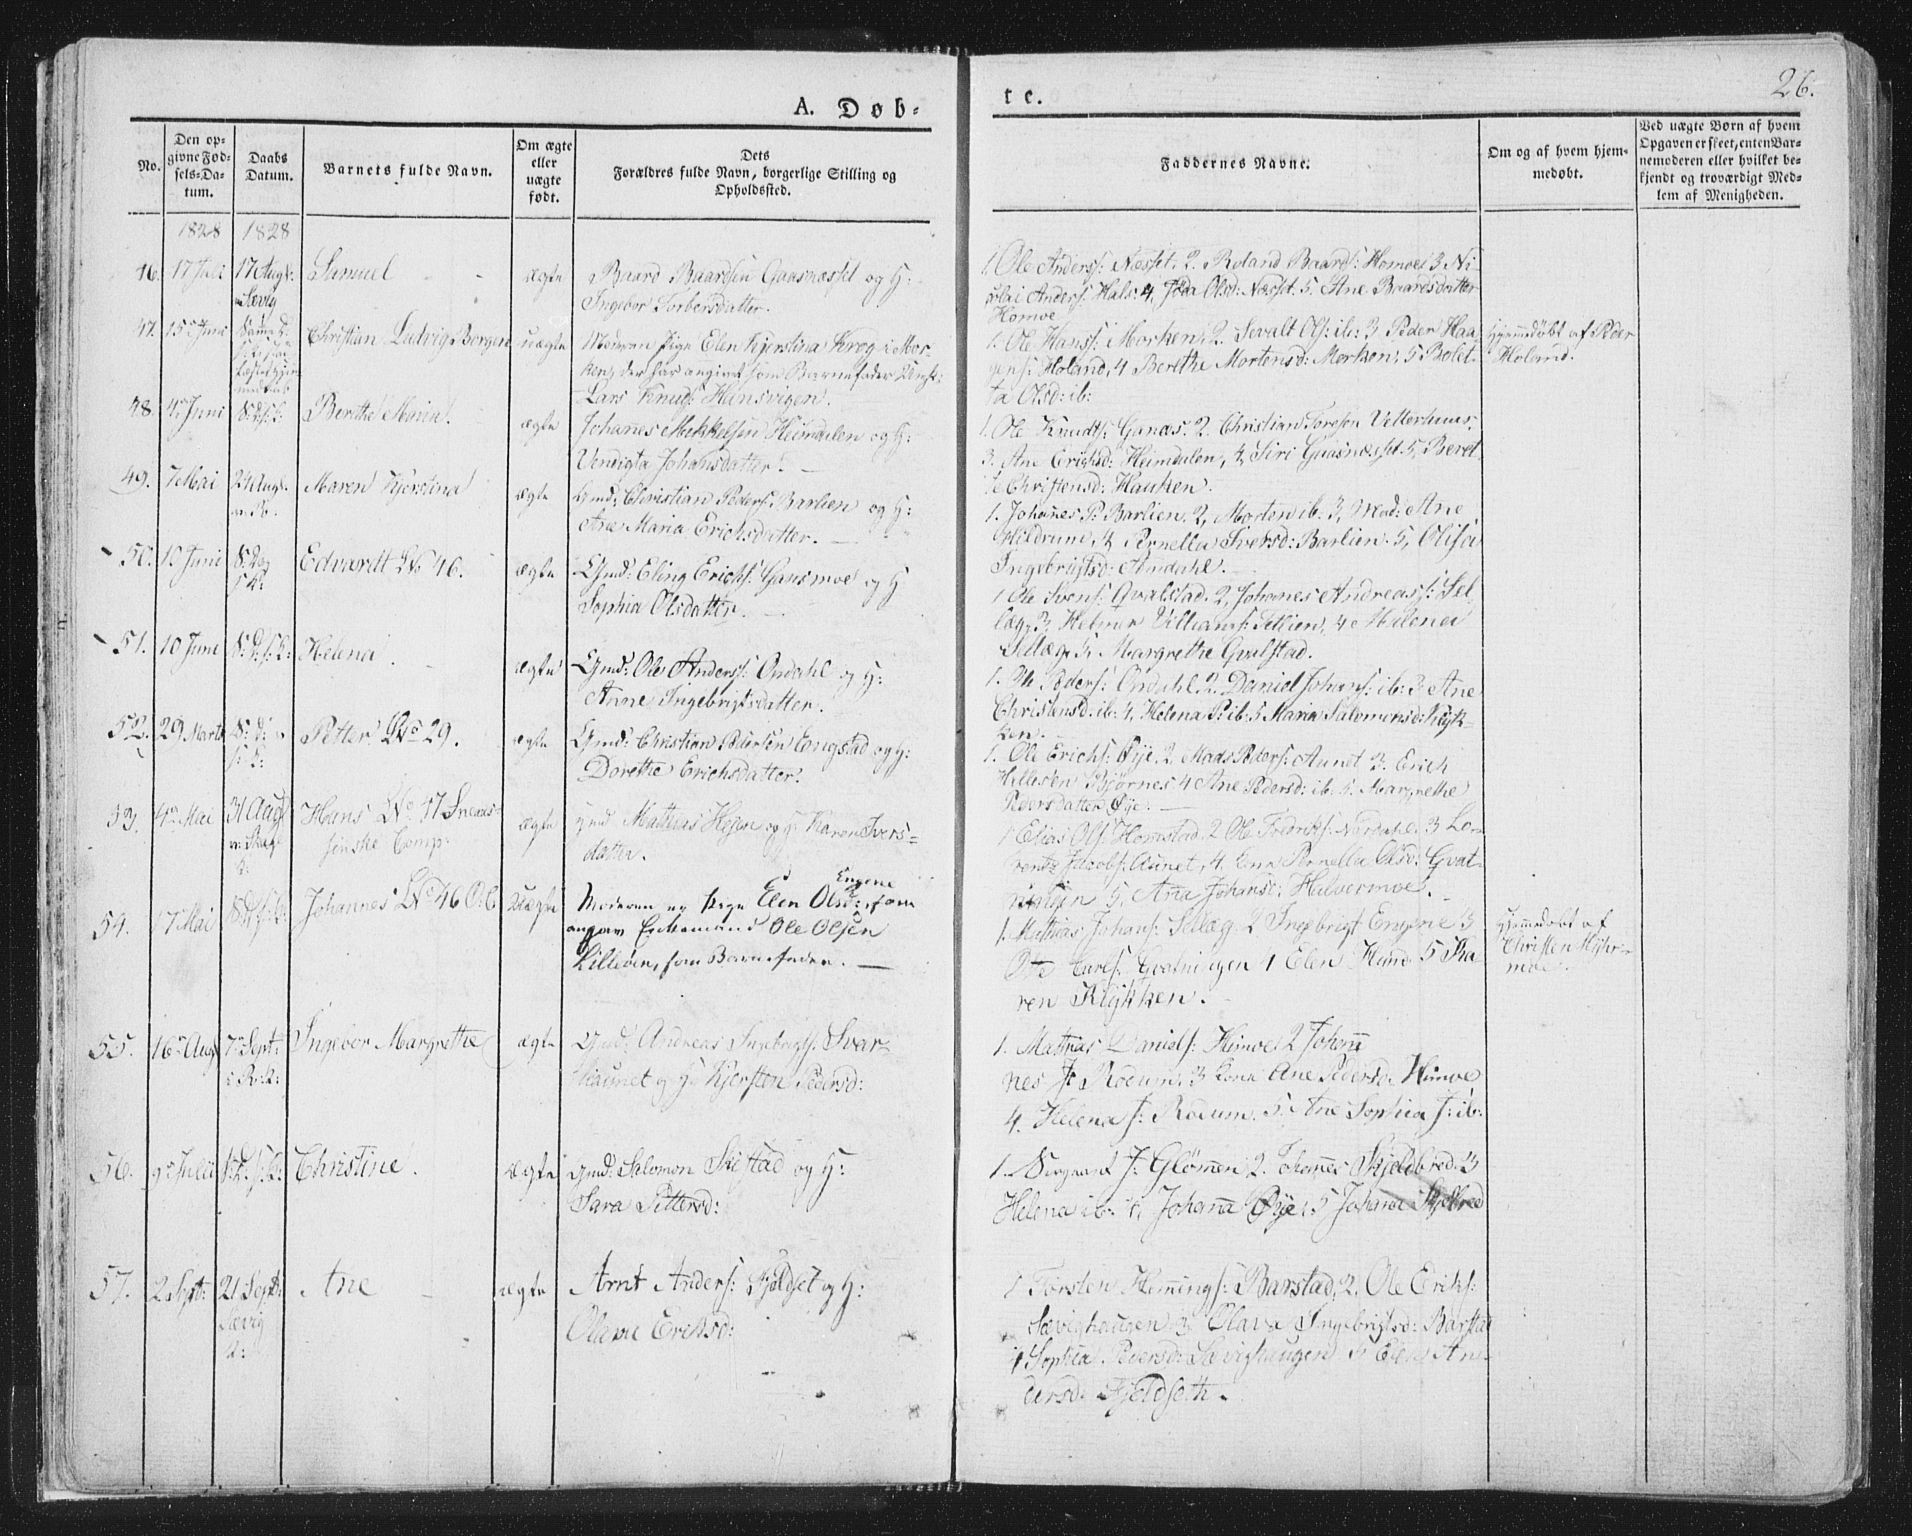 26.
A. Døb-
te.
No.
Den op-
givne Fød-
sels-Da-
tum.
Daabs
Datum.
Barnets fulde Navn.
Om ægte
eller
uægte
født.
Dets
Forældres fulde Navn, borgerlige Stilling og
Opholdssted.
Faddernes Navne.
Om og af hvem hjem-
medøbt.
Ved uægte Børn af hvem
Opgaven er skeet, enten Bar-
nemoderen eller hvilket be-
kjendt og troværdigt Med-
lem af Menigheden.
1828 1828
46. 17 Juli 17 Aug: Samuel ægte Baard Baardsen Gaasnæsset og H:
Sævig Ingebor Torbersdatter.
1. Ole Anderss: Næsset. 2. Roland Baards: Homoe 3 Ni-
colai Anders: Hals: 4, Olsd: Næsset 5. Ane Baardsdatter
Homoe
47. 15 Juni Christian Ludvig Borgen uægte Moderen Pige Elen Kjerstina Krog i Mor-
ken, der har angivet som Barnefader Unk:
Lars Knuds: Hansvigen.
1. Ole Hanss: Morken, 2. Sevalt Ols: ib: 3 Peder Haa-
gens: Holand, 4 Berethe Mortensd: Morken, 5 Bolet-
ta Olsd: ib:
Hjemmedøbt af Peder
Holand.
48. 4 Juni Berithe Maria. ægte Johanes Mikkelsen Heimdalen og H:
Vendigta Johansdatter. —
1. Ole Knudts: Ganæs. 2. Christian Toresen Vetterhuus.
3. Ane Erichsd: Heimdalen, 4, Siri Gaasnæsset 5, Beret
te Christensd: Hauken.
49. 7 Mai 24 Aug: Maren Kjerstina ægte Gmd: Christian Peders: Barlien og H:
Ane Maria Erichsdatter. —
1. Johanes P: Barlien. 2, Morten ib. 3, Mad: Ane
Hildrum, 4, Pernella Iversd: Barlien. 5, Olisia
Ingebrigtsd: Amdahl.
50. 10 Juni Edvardt No 46. ægte Gmd: Eling Erichs: Gaasmoe og H
Sophia Olsdatter. —
1 Ole Svens: Qvalstad. 2, Johanes Andreass: Sel-
læg, 3, Helmer Villiams: Tillien, 4 Helena
Sellæg 5, Margrethe Gvalstad.
51. 10 Juni Helena. ægte Gmd: Ole Anderss: Ondahl og H:
Anne Ingebrigtsdatter.
1. Ole Peders: Ondahl. 2. Daniel Johans: ib: 3. Ane
Christensd: ib: 4, Helena P: ib: 5 Maria Salomonsd: Ryk-
ken.
52. 29 Marts Petter No 29. ægte Gmd: Christian Pedersen Engstad og H:
Dorethe Erichsdatter.
1. Ole Erichs: Øye. 2. Mads Peders: Aunet 3. Erich
Hellesen Bjørnes 4 Ane Pedersd: ib: 5. Margrethe
Pedersdatter Øye. —
53. 4 Mai 31 Aug Hans No 47 Snaas- ægte gmd Mathias Hojem og H: Karen Ivers-
sinske Comp: datter.
1 Elias Ols: Homstad. 2 Ole Fredriks: Nordahl. 3 Lo-
rents Jacobs: Aunet, 4 Pernella Olsd: Gvat-
5, Ana Johansd: Halvermoe.
54. 17 Mai Johannes No 46 uægte Moderen er Pige Elen Olsd: Engene, som
angav Enkemand Ole Olsen
Lilleøen, som Barnefader. —
1. Mathias Johans: Sellæg. 2 Ingebrigt Engene 3
Ole Gvatningen 4 Elen Hund 5 Ka-
ren Rykken.
Hjemmedøbt af
Christen
moe.
55. 16 Aug 7 Sept: Ingebor Margrethe ægte Gmd: Andreas Ingebrigts: Svar-
liaunet og H: Kjersten Pedersd:
1. Mathias Daniels: Himoe 2 Johan
nes J: Rodum, 3 Kona Ane Pedersd: Himoe
4. Helena J: Rodum. 5. Ane Sophia J: ib:
56. 9 Julii Christine. ægte Gmd: Salomon Skistad og H:
Sara Pittersd:
1. Sergeant J: Glømmen 2. Johannes Skjeldbred. 3
Helena ib: 4, Johanna Øye: 5 Johana Skjelbred
57. 2 Sept: 21 Sept: Ane ægte Arnt Anders: Fjeldset og H:
Sævig Olava Eriksd:
K:
1 Torsten Hemmings: Barstad, 2, Ole Eriks:
Sævighaugen 3, Olava Ingebrigtsd: Barstad
4 Sophia Pedersd: Sævighaugen 5 Elen An-
dersd: Fjeldseth.